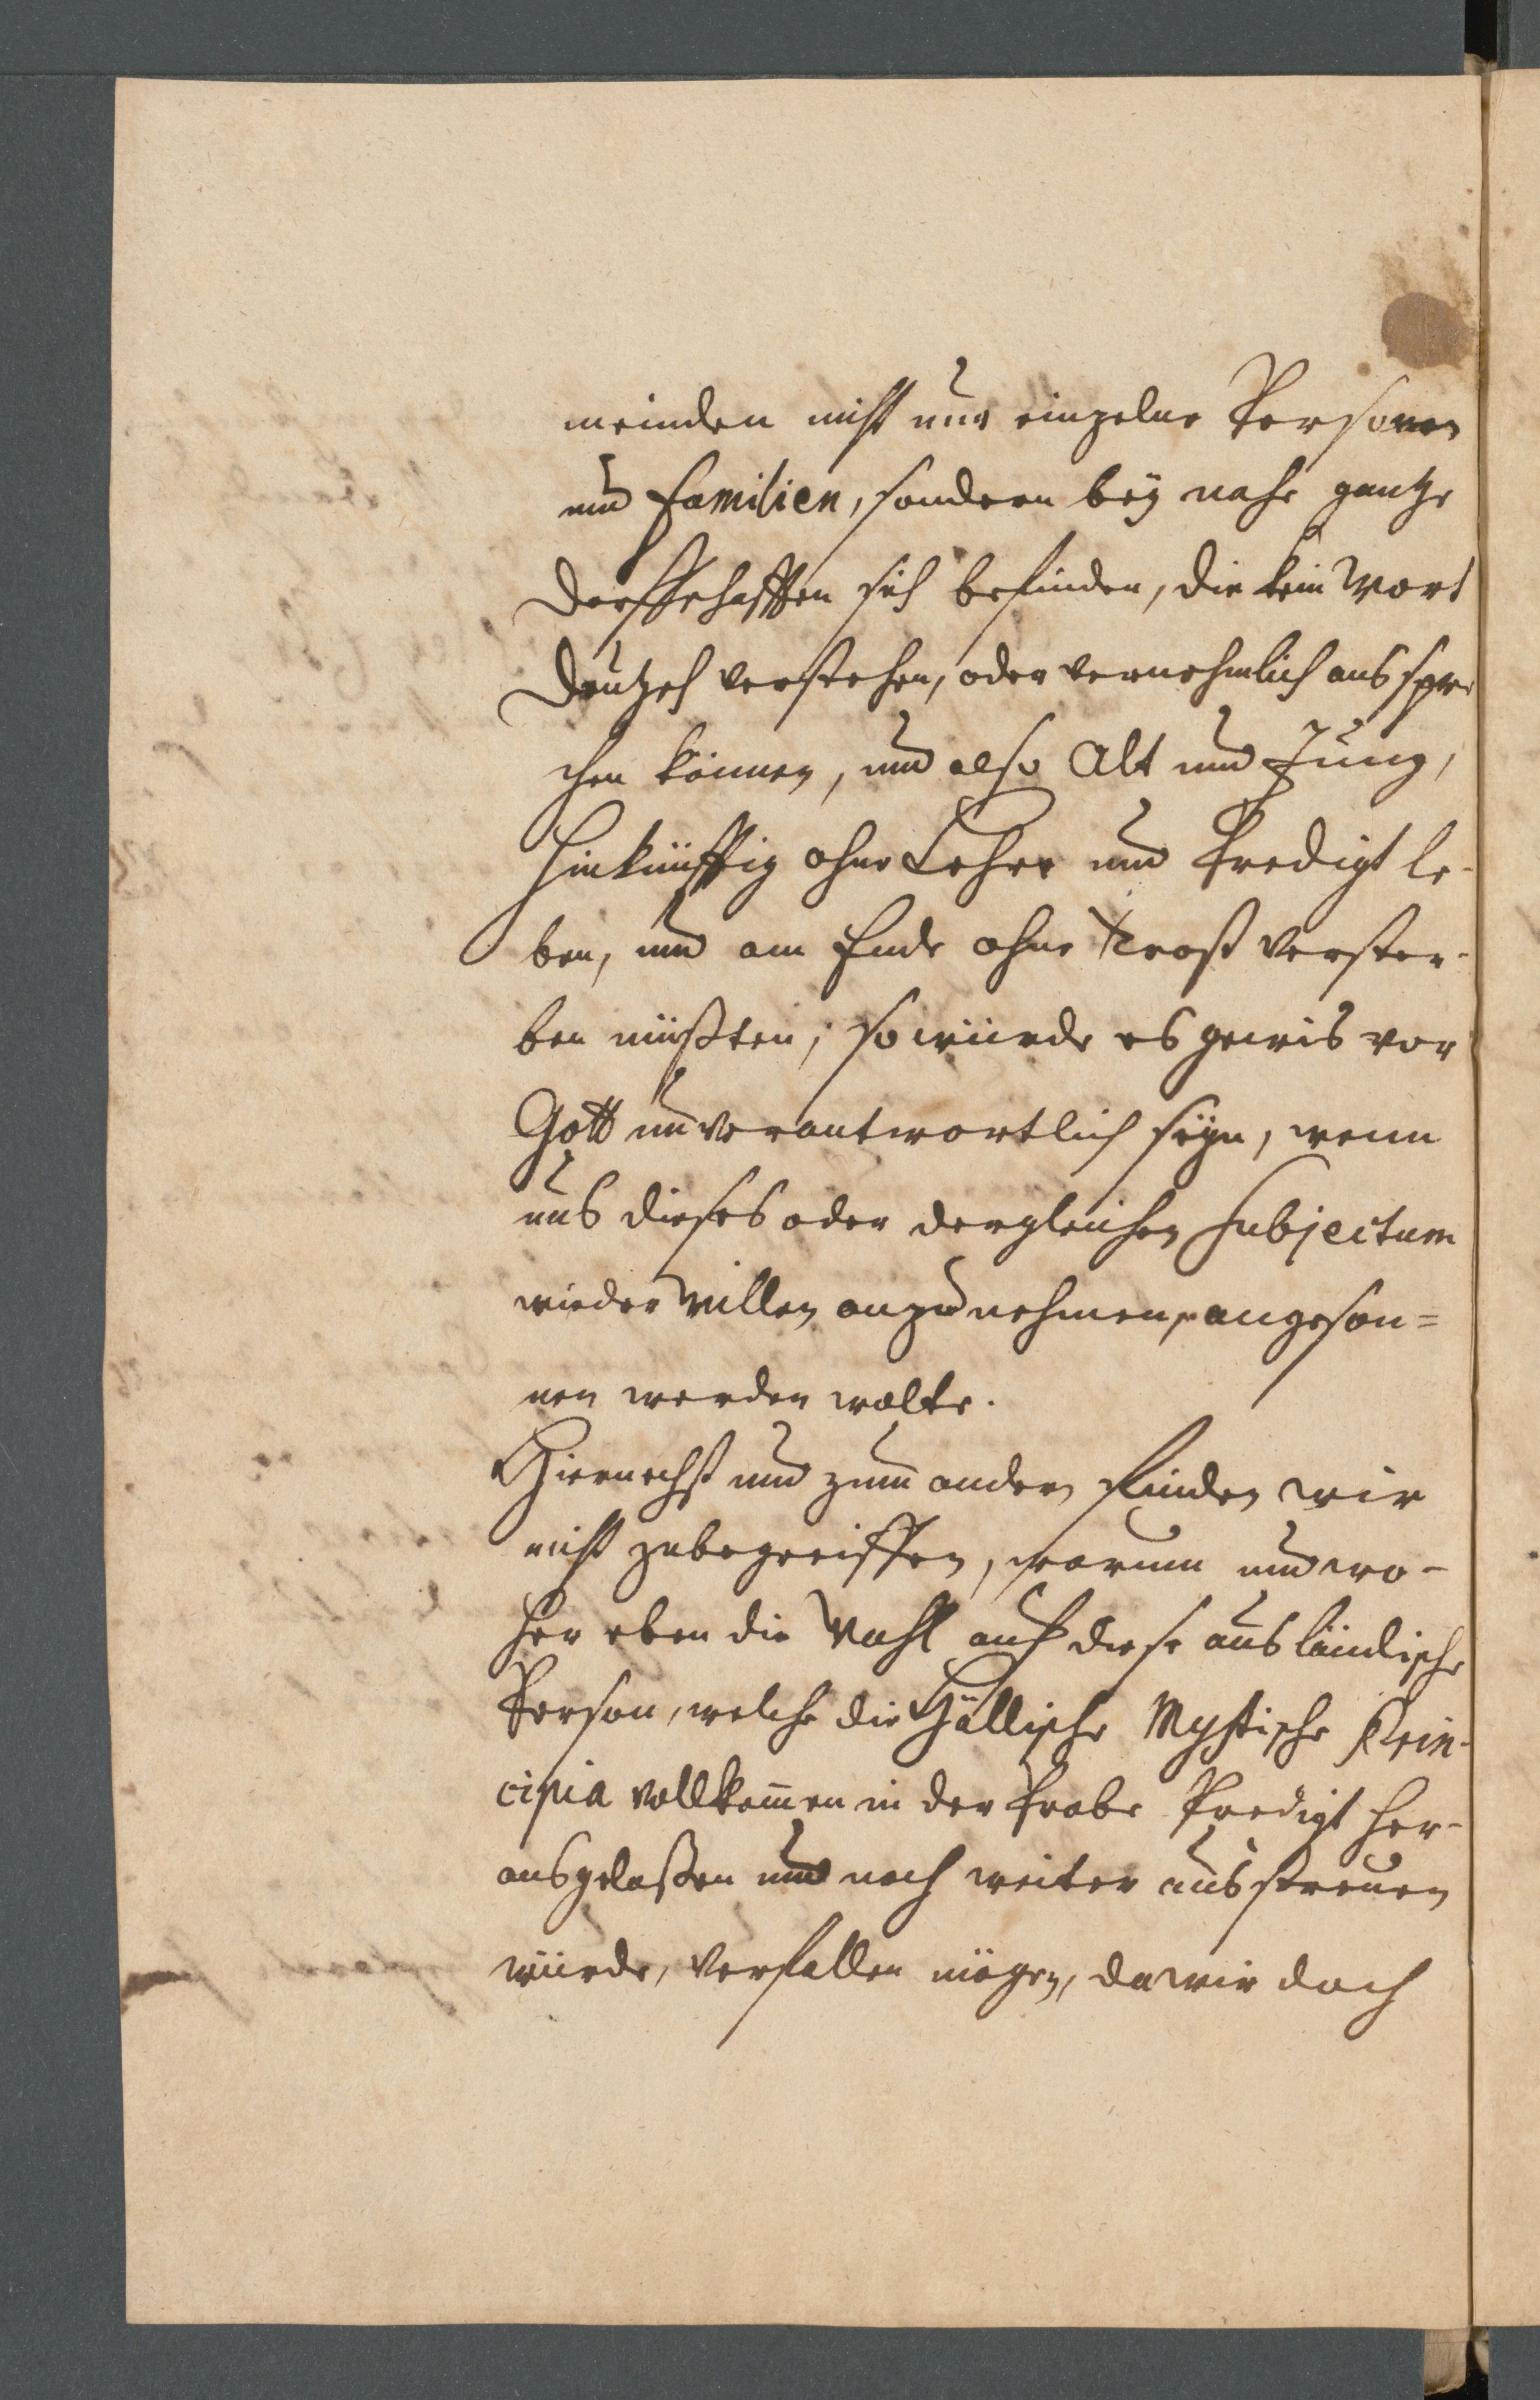 meinden nicht nur einzelne Personen
und Familien, sondern bey nahe gantze
Dorffschafften sich befinden, die kein Wort
deutzsch verstehen, oder vernehmlich ausspre-
chen können, und also Alt und Jung,
hinkünfftig ohne Lehre und Predigt le-
ben, und am Ende ohne Trost verster-
ben müßten; so würde es gewis vor
Gott unverantwortlich seyn, wenn
uns dieses oder dergleichen Subjectum
wieder Willen anzunehmen, angeson=
nen werden wolte.
Hiernechst und zum andern finden wir
nicht zubegreiffen, warum und wo-
her eben die Wahl auf diese ausländische
Person, welche die Hällische Mystische Prin-
cipia vollkom̃en in der Probe Predigt her-
ausgelaßen und noch weiter ausstreuen
würde, verfallen mögen, da wir doch